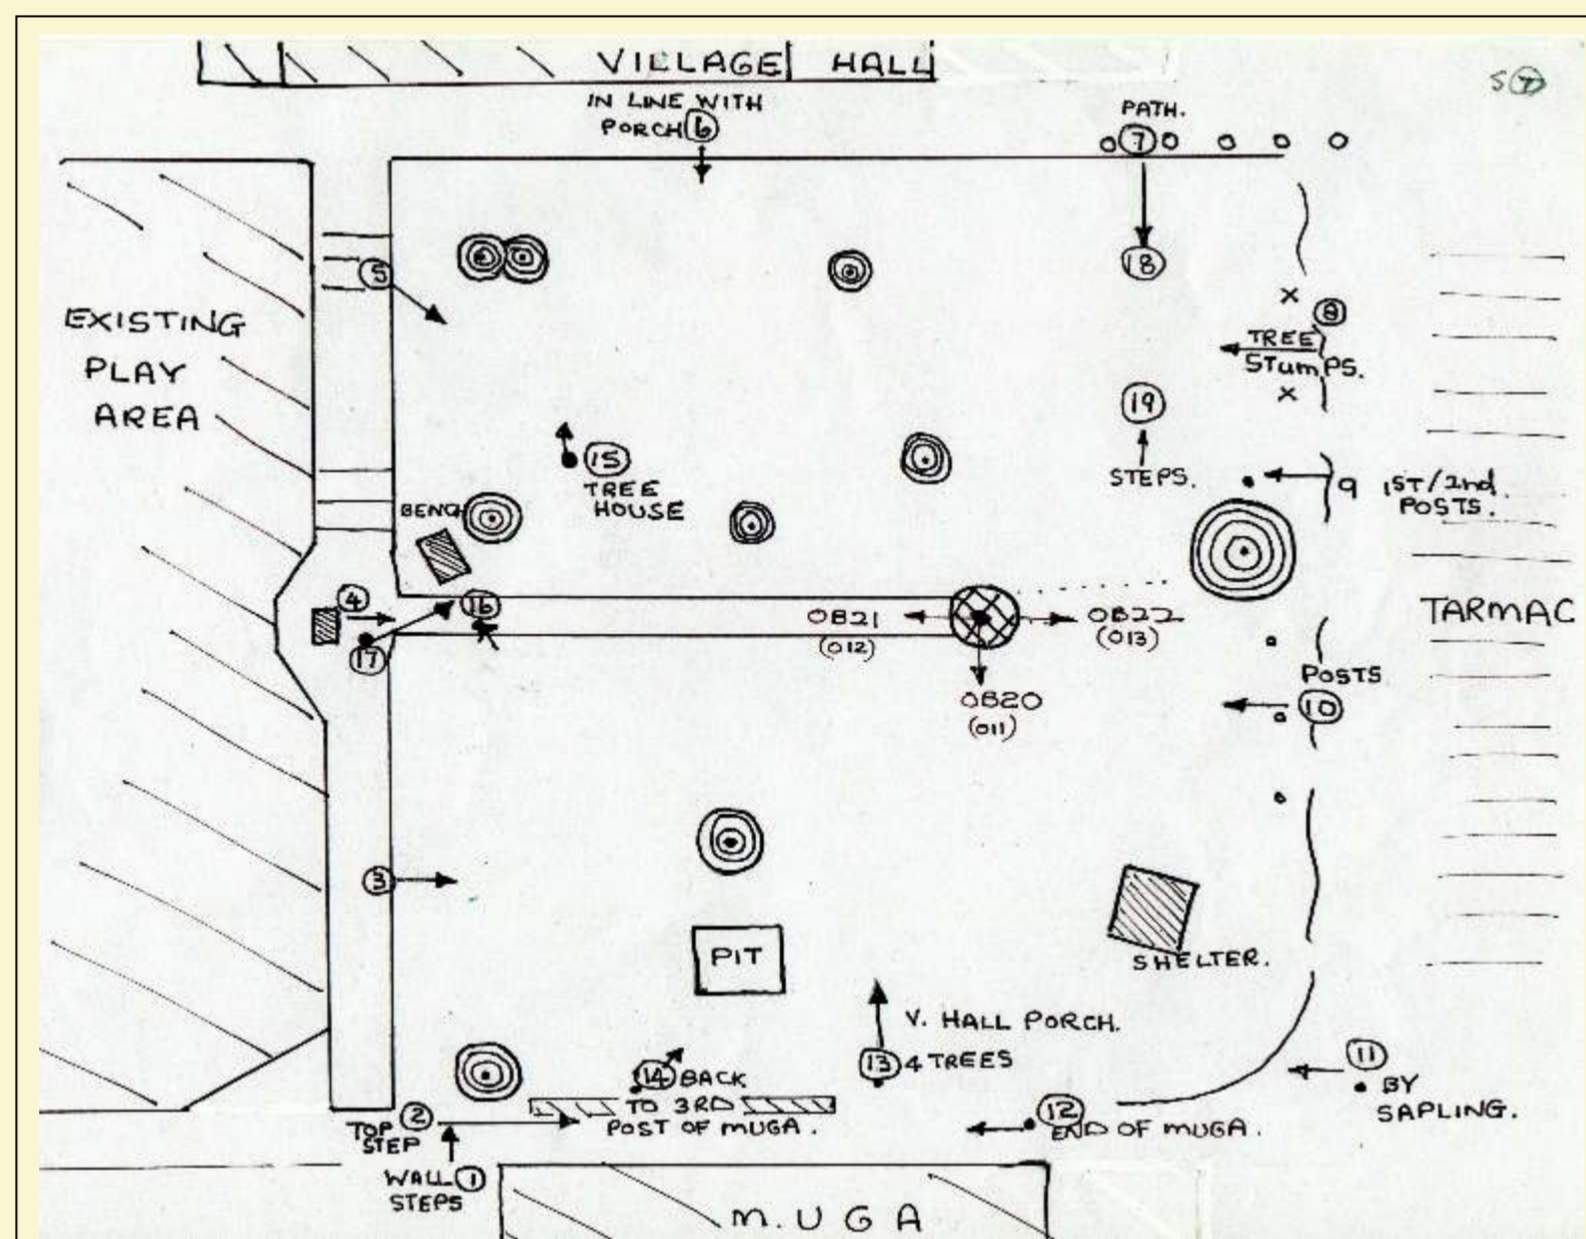 VILLAGE HALL
S 7
IN LINE WITH
PORCH 6
PATH.
7
5
18
8
TREE
STUMPS.
EXISTING
PLAY
AREA
19
STEPS.
15
TREE
HOUSE
9 1ST/2nd
POSTS.
BENCH
4
16
17
OB21
(012)
OB22
(013)
OB20
(011)
TARMAC
POSTS
10
3
PIT
SHELTER.
V. HALL PORCH.
13 4 TREES
14 BACK
TO 3RD
POST OF MUGA.
11
BY
SAPLING.
12
END OF MUGA.
2
TOP
STEP
WALL 1
STEPS
M.U G A